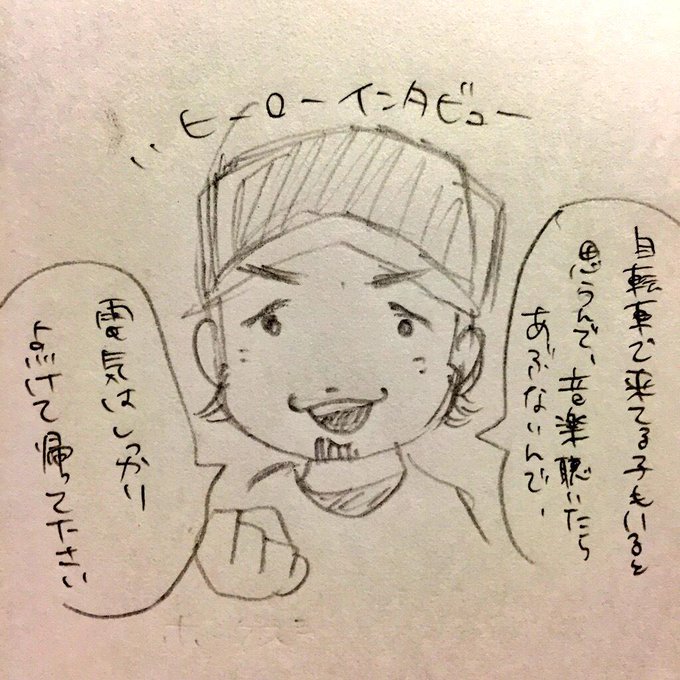 ヒーローインタビュー
自転車で来てる子もいると
思うんで、音楽聴いたら
あぶないんで、
電気はしっかり
よけて帰ってださい